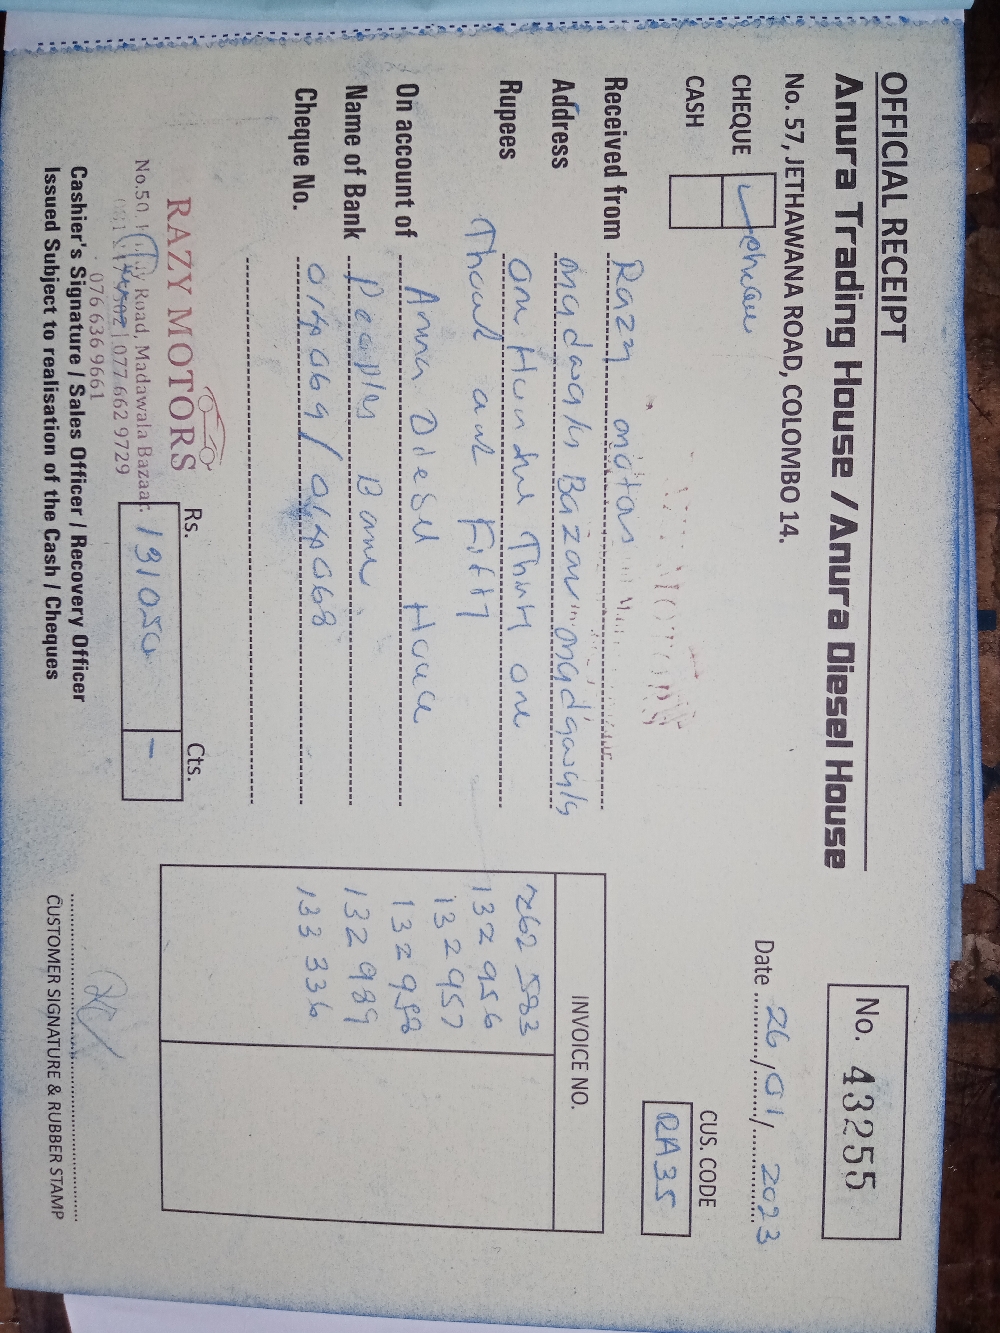 OFFICIAL RECEIPT
Anura Trading House / Anura Diesel House
No. 57, JETHAWANA ROAD, COLOMBO 14.
No. 43255
Date 26/01/2023
CHEQUE
CASH
CUS. CODE
RA35
Received from Razy motors
Address madawala Bazaar madawala
Rupees one Hundred Thirty one
Thousand and Fifty
On account of Anura Diesel House
Name of Bank Peoples Bank
Cheque No. 014069 / 014068
INVOICE NO.
132956
132957
132958
132989
133336
Rs. Cts.
131050 -
RAZY MOTORS
Road, Madawala Bazaar.
077 662 9729
076 636 9661
Cashier's Signature / Sales Officer / Recovery Officer
Issued Subject to realisation of the Cash / Cheques
CUSTOMER SIGNATURE & RUBBER STAMP